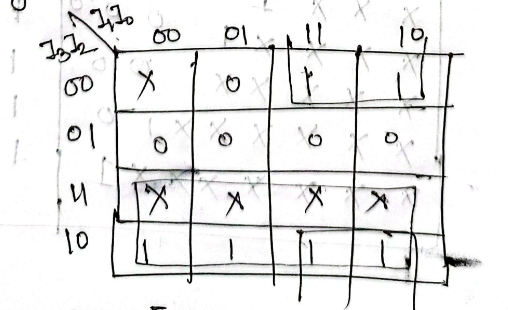 I₁I₀
I₃I₂ 00 01 11 10
00 X 0 1 1
01 0 0 0 0
11 X X X X
10 1 1 1 1